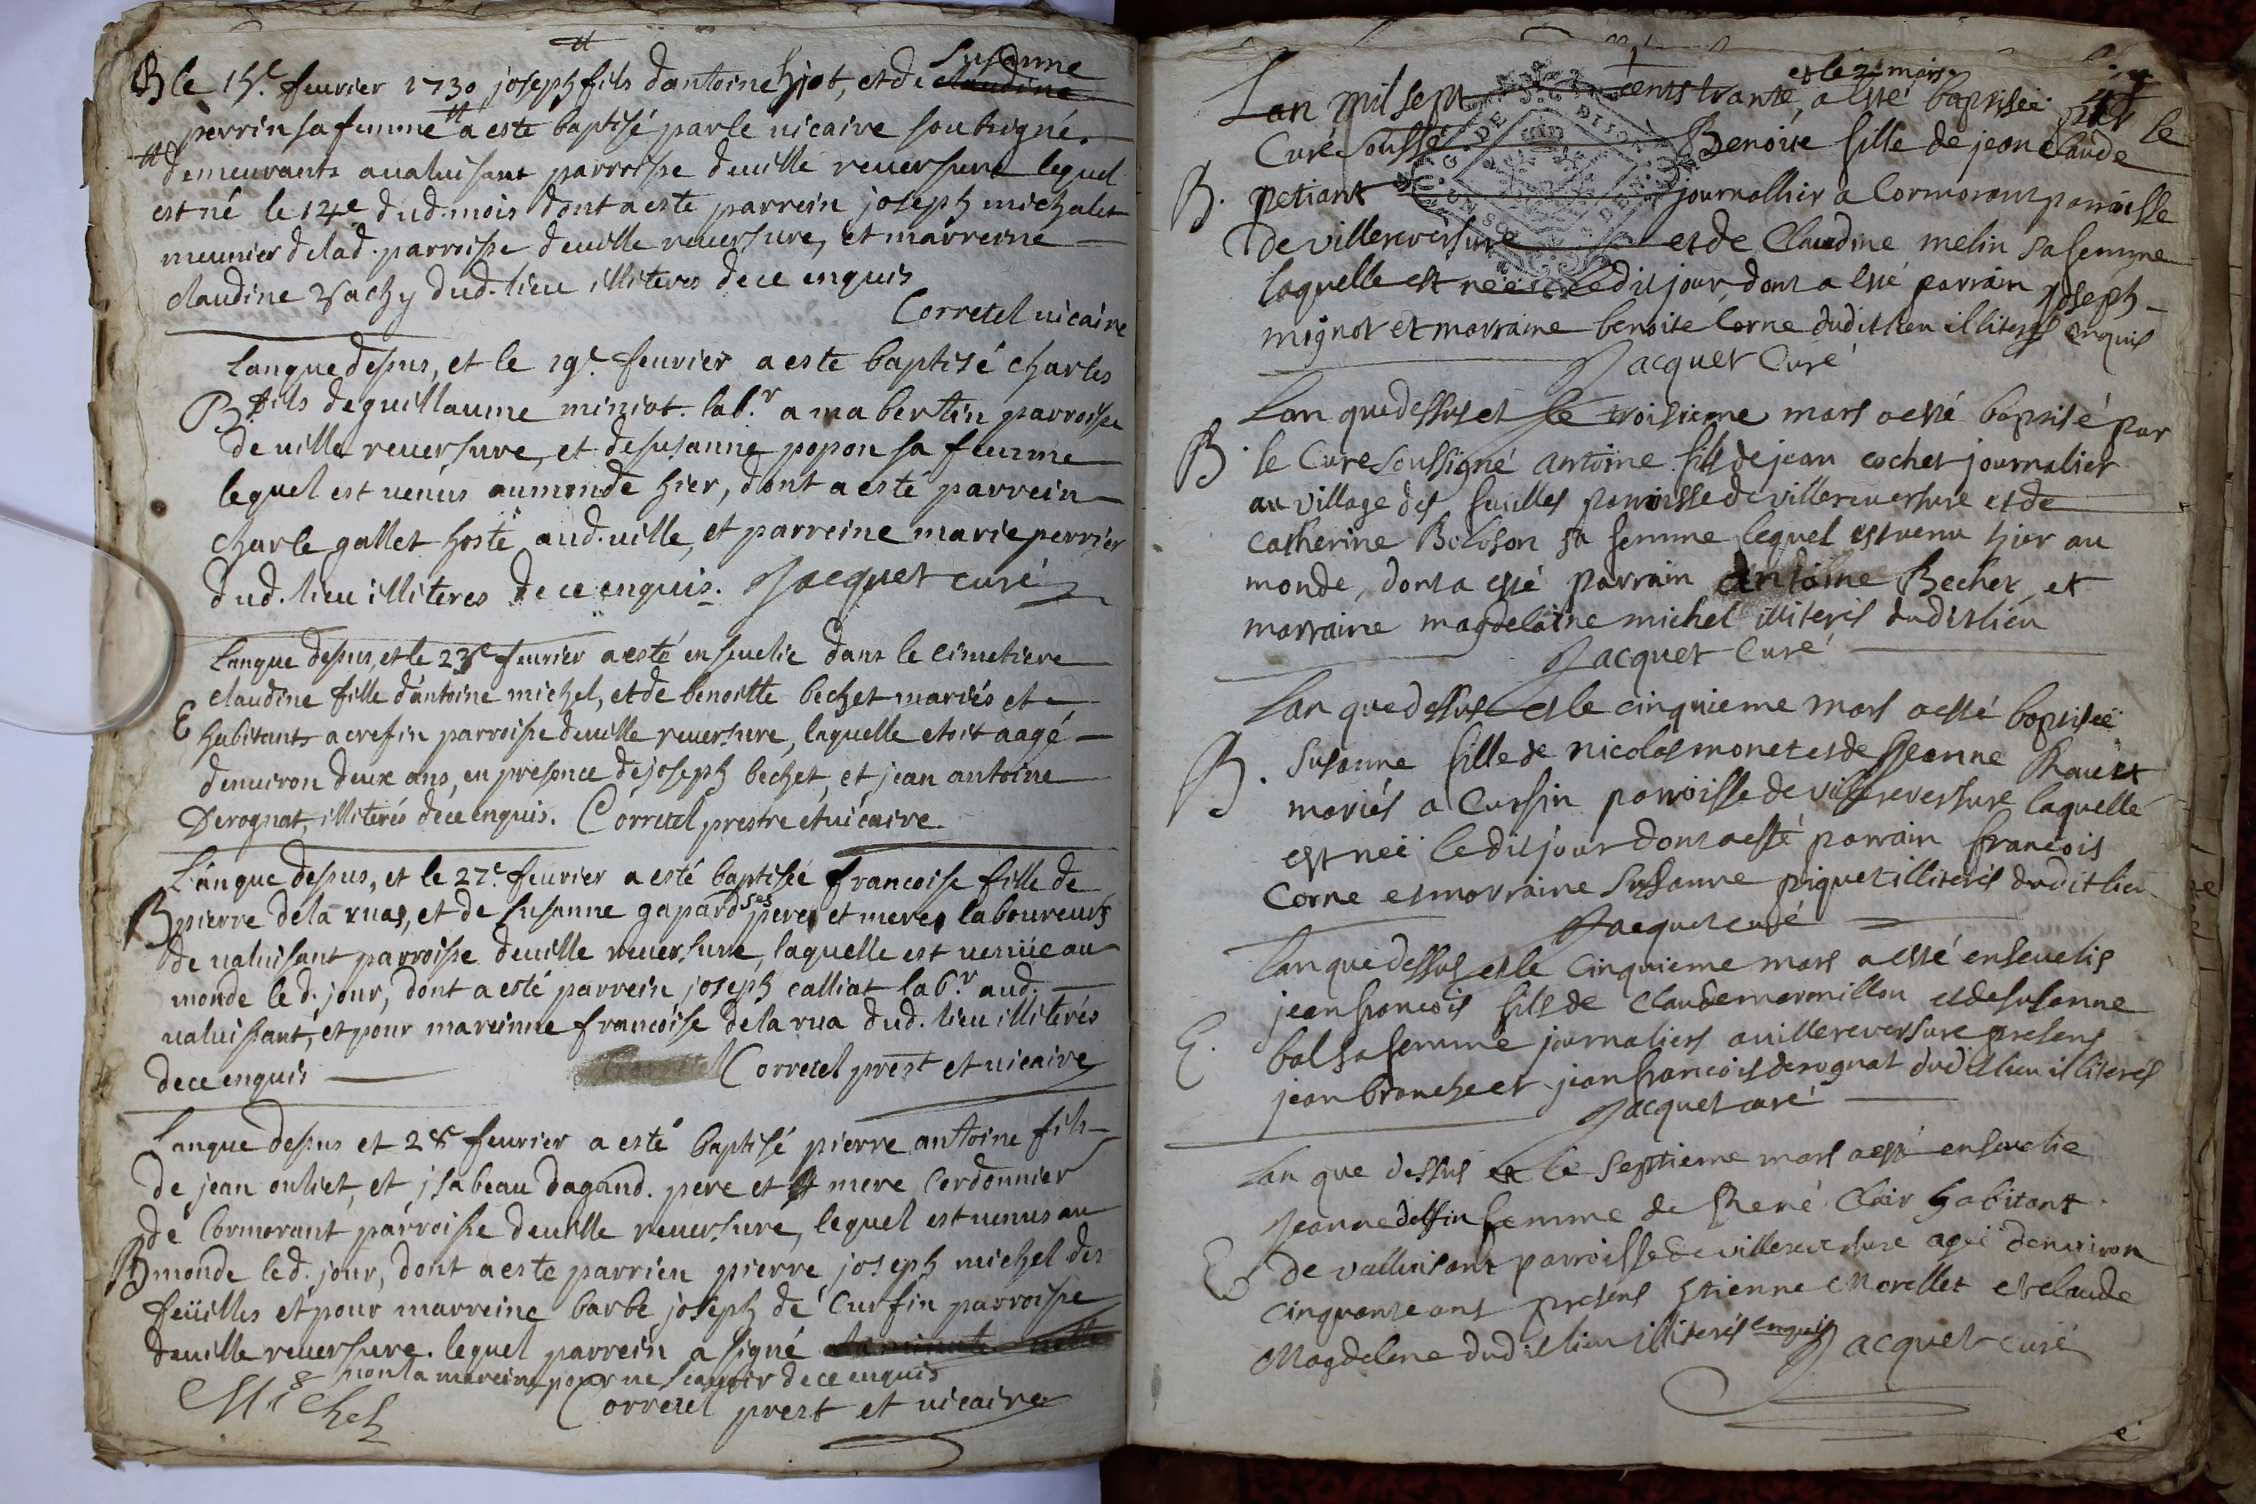 B le 15e feurier 1730 joseph fils dantoine hjot, et de claudine Susanne
perrin sa femme # a este baptisé par le uicaire soubsigné.
# demeurants aualuisant parroisse deuille reuersure lequel
est né le 14e dud. mois dont a este parrein joseph michalet
meunier delad. parroisse deuille reuersure, et marreine
claudine Vachy dud. lieu illiteres de ce enquis
Corretel uicaire
Lanquedessus, et le 19e feurier a este baptisé charles
B fils deguillaume miniot labr a mabertin parroisse
de uille reuersure, et desusanne popon sa femme
lequel est uenus aumonde hier, dont a esté parrein
charle gallet hoste aud. uille, et parreine marie perrier
dud. lieu illiteres de ce enquis. Jacquet curé
Lanque dessus, et le 23e feurier a esté enseuelie dans le cimetiere
claudine fille d'antoine michel, et de benoitte bechet mariés et
E habitants a crefin parroisse deuille reuersure, laquelle etoit aagé
denuiron deux ans, en presence de joseph bechet, et jean antoine
Derognat, illiterés dece enquis. Corretel prestre et uicaire
Lanque dessus, et le 27e feurier a esté baptisée francoise fille de
B pierre dela ruas, et de Susanne gapard ses peres et meres laboureurs
de ualuisant parroisse deuille reuersure, laquelle est uenüe au
monde led. jour, dont a esté parrein joseph calliat labr aud.
ualuissant, et pour mareinne francoise dela rua dud. lieu illiterés
dece enquis Corretel prest et uicaire
Lanque dessus et 28e feurier a esté baptisé pierre antoine fils
de jean ouliet, et jsabeau dagand. pere et mere Cerdonnier
de Cormorant parroisse deuille reuersure, lequel est uenus au
B monde led. jour, dont a este parrien pierre joseph michel des
feüilles et pour marreine barbe joseph de Curfin parroisse
deuille reuersure. lequel parrein a signé
& non la mareine pour ne scauoir de ce enquis
Michel Corretel prest et uicaire
Lan mil sept cents trante, et le 2e mars a esté baptiseé par le
Curé soussigé Benoite fille de jean claude
B. petiant journallier a Cormorant parroisse
de villereversure et de Claudine melin sa femme
laquelle est neé ledit jour, dont a esté parrain joseph
mignot et marraine benoite Corne dudit lieu illiterés enquis
Jacquet Curé
Lan que dessus et le troisieme mars a esté baptisé par
B. le Curé soussigné antoine fils de jean cochet journalier
au village des fuilles parroisse de villereuersure et de
Catherine Boloson sa femme lequel est venu hier au
monde, dont a esté parrain antoine Bechet, et
marraine magdelaine michel illiterés dudit lieu
Jacquet Curé
Lan que dessus et le cinquieme mars a esté baptiseé
B. Susanne fille de nicolas monet et de Jeanne Rauet
mariés a Curfin parroisse de villereversure laquelle
est neé ledit jour dont a esté parrain francois
Corne et marraine Susanne piquet illiterés dudit lieu
Jacquet curé
Lan que dessus et le cinquieme mars a esté enseuelis
jean francois fils de Claude marmillon et de susanne
E. bal sa femme journaliers a villereversure presens
jean branche et jean francois derognat dudit lieu illiterés
Jacquet curé
Lan que dessus et le septieme mars a esté enseuelie
Jeanne dolfin femme de René Clair habitant
E de valluisant parroisse de villereversure ageé denuiron
cinquante ans presens Etienne Morellet et claude
Magdelene dudit lieu illiterés enquis Jacquet curé